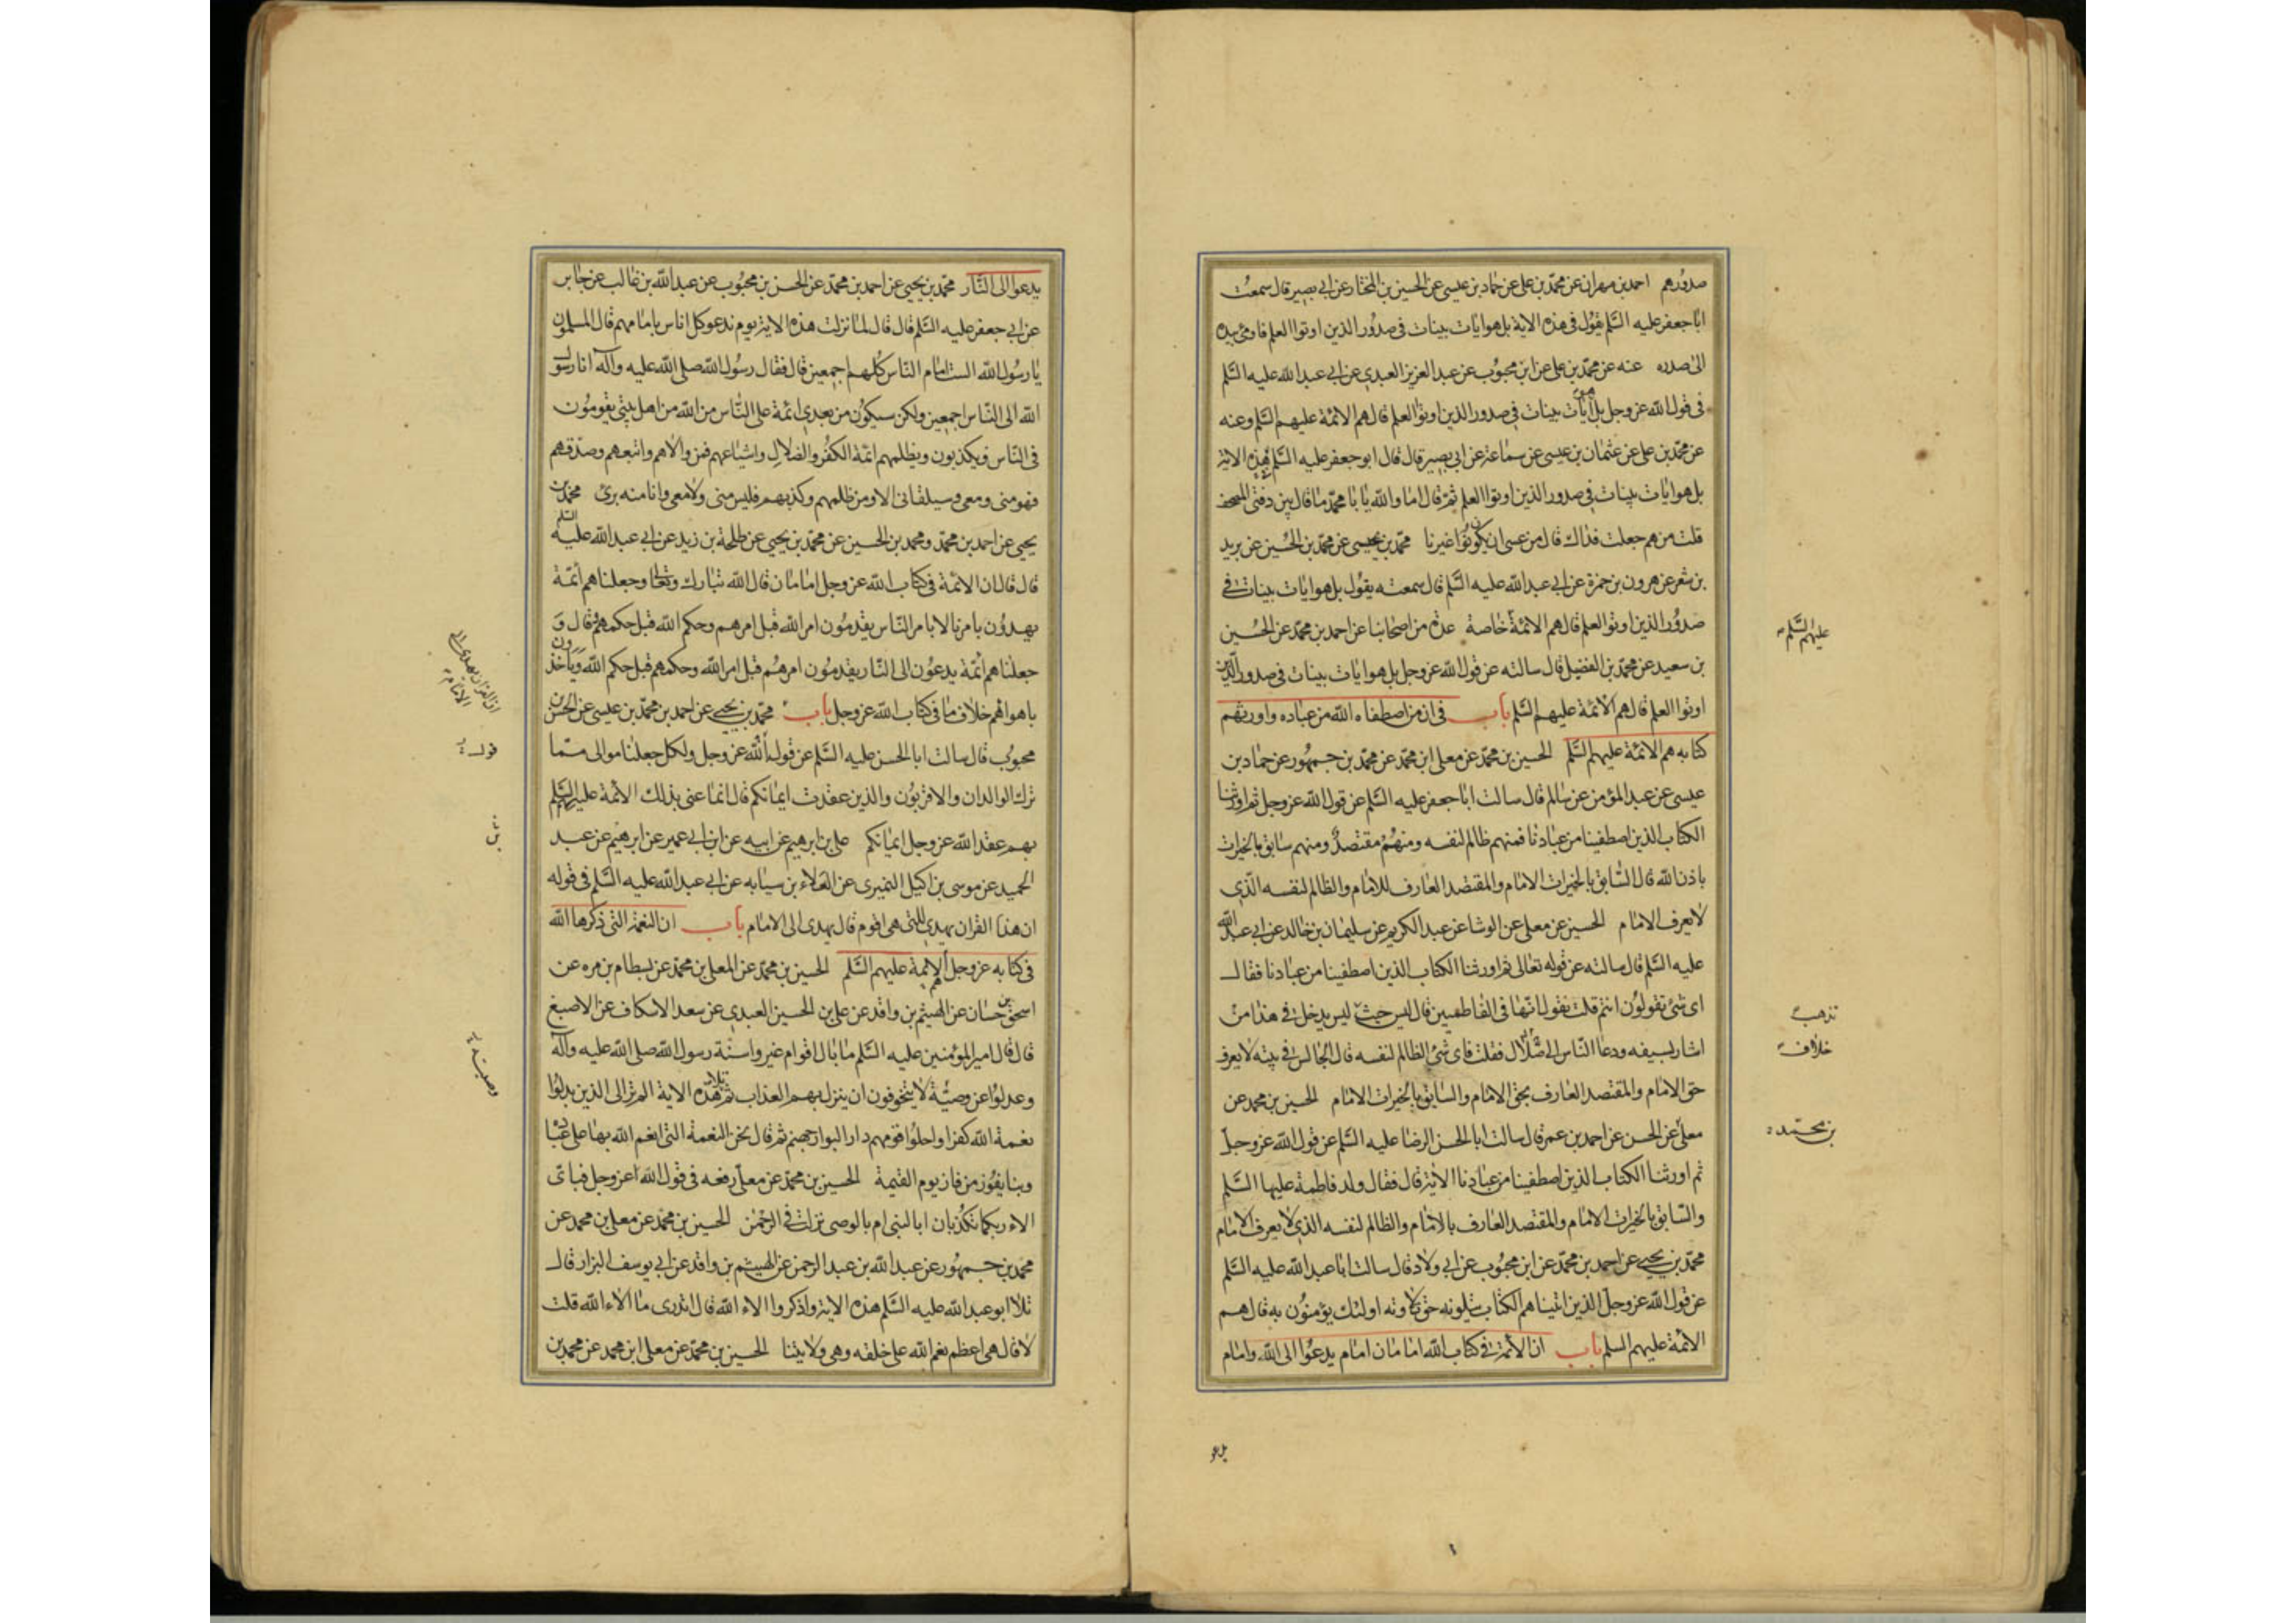 صدورهم احمد بن مهران عن محمد بن علی عن حماد بن عیسی عن الحسین بن المختار عن ابی بصیر قال سمعت
ابا جعفر علیه السّلم یقول فی هذه الایة بل هو ایات بینات فی صدور الذین اوتوا العلم فاومی بیده
الی صدره عنه عن محمد بن علی عن ابن محبوب عن عبد العزیز العبدی عن ابی عبد الله علیه السّلم
فی قول الله عز وجل بل هو آیات بینات فی صدور الذین اوتوا العلم قال هم الائمة علیهم السّلم وعنه
عن محمد بن علی عن عثمان بن عیسی عن سماعة عن ابی بصیر قال قال ابو جعفر علیه السّلم هذه الایة
بل هو ایات بینات فی صدور الذین اوتوا العلم ثم قال اما والله یا با محمد ما قال بین دفتی المصحف
قلت من هم جعلت فداك قال من عسی ان یکونوا غیرنا محمد بن یحیی عن محمد بن الحسین عن یزید
بن شعر عن هرون بن حمزة عن ابی عبد الله علیه السّلم قال سمعته یقول بل هو ایات بینات فی
صدور الذین اوتوا العلم قال هم الائمة خاصة عدة من اصحابنا عن احمد بن محمد عن الحسین
بن سعید عن محمد بن الفضیل قال سالته عن قول الله عز وجل بل هو ایات بینات فی صدور الذین
اوتوا العلم قال هم الائمة علیهم السّلم باب فی ان من اصطفاه الله من عباده واورثهم
کتابه هم الائمة علیهم السّلم الحسین بن محمد عن معلی ابن محمد عن محمد بن جمهور عن حماد بن
عیسی عن عبد المؤمن عن سالم قال سالت ابا جعفر علیه السّلم عن قول الله عز وجل ثم اورثنا
الکتاب الذین اصطفینا من عبادنا فمنهم ظالم لنفسه ومنهم مقتصد ومنهم سابق بالخیرات
باذن الله قال السّابق بالخیرات الامام والمقتصد العارف للامام والظالم لنفسه الّذی
لا یعرف الامام الحسین عن معلی عن الوشا عن عبد الکریم عن سلیمان بن خالد عن ابی عبد الله
علیه السّلم قال سالته عن قوله تعالی ثم اورثنا الکتاب الذین اصطفینا من عبادنا فقال
ای شیء تقولون انتم قلت نقول انّها فی الفاطمیین قال لیس حیث لیس یدخل فی هذا من
اشار بسیفه ودعا النّاس الی ضلال فقلت فای شیء الظالم لنفسه قال الجالس فی بیته لا یعرف
حق الامام والمقتصد العارف بحق الامام والسابق بالخیرات الامام الحسین بن محمد عن
معلی عن الحسن عن احمد بن عمر قال سالت ابا الحسن الرضا علیه السّلم عن قول الله عز وجلّ
ثم اورثنا الکتاب الذین اصطفینا من عبادنا الایة قال فقال ولد فاطمة علیها السّلم
والسّابق بالخیرات الامام والمقتصد العارف بالامام والظالم لنفسه الذی لا یعرف الامام
محمد بن یحیی عن احمد بن محمد عن ابن محبوب عن ابی ولاد قال سالت ابا عبد الله علیه السّلم
عن قول الله عز وجلّ الذین اتیناهم الکتاب یتلونه حق تلاوته اولئك یؤمنون به قال هم
الائمة علیهم السلم باب ان الائمة فی کتاب الله امامان امام یدعوا الی الله وامام
علیهم السّلم
تذهب
خلاف
بن محمد
یدعو
یدعوا الی النّار محمد بن یحیی عن احمد بن محمد عن الحسن بن محبوب عن عبد الله بن غالب عن جابر
عن ابی جعفر علیه السّلم قال قال لما نزلت هذه الایة یوم ندعو کل اناس بامامهم قال المسلمون
یا رسول الله الست امام النّاس کلهم اجمعین قال فقال رسول الله صلی الله علیه وآله انا رسول
الله الی النّاس اجمعین ولکن سیکون من بعدی ائمة علی النّاس من الله من اهل بیتی یقومون
فی النّاس فیکذبون ویظلمهم ائمة الکفر والضلال واشیاعهم فمن والاهم واتبعهم وصدّقهم
فهو منی ومعی وسیلقانی الا ومن ظلمهم وکذبهم فلیس منی ولا معی وانا منه بریء محمد بن
یحیی عن احمد بن محمد ومحمد بن الحسین عن محمد بن یحیی عن طلحة بن زید عن ابی عبد الله علیه السّلم
قال قال ان الائمة فی کتاب الله عز وجل امامان قال الله تبارك وتعالی وجعلناهم أئمّة
یهدون بامرنا لا بامر النّاس یقدمون امر الله قبل امرهم وحکم الله قبل حکمهم قال و
جعلناهم أئمّة یدعون الی النّار یقدمون امرهم قبل امر الله وحکمهم قبل حکم الله ویاخذون
باهوائهم خلاف ما فی کتاب الله عز وجل باب محمد بن یحیی عن احمد بن محمد بن عیسی عن الحسن بن
محبوب قال سالت ابا الحسن علیه السّلم عن قول الله عز وجل ولکل جعلنا موالی ممّا
ترك الوالدان والاقربون والذین عقدت ایمانکم قال انما عنی بذلك الائمة علیهم السّلم
بهم عقد الله عز وجل ایمانکم علی بن ابرهیم عن ابیه عن ابن ابی عمیر عن ابرهیم عن عبد
الحمید عن موسی بن اکیل النمیری عن العلاء بن سیابه عن ابی عبد الله علیه السّلم فی قوله
ان هذا القران یهدی للتی هی اقوم قال یهدی الی الامام باب ان النعمة التی ذکرها الله
فی کتابه عز وجل الائمة علیهم السّلم الحسین بن محمد عن المعلی بن محمد عن بسطام بن مره عن
اسحق بن حسان عن الهیثم بن واقد عن علی بن الحسین العبدی عن سعد الاسکاف عن الاصبغ
قال قال امیر المؤمنین علیه السّلم ما بال اقوام غیروا سنّة رسول الله صلی الله علیه وآله
وعدلوا عن وصیّة لا یتخوفون ان ینزل بهم العذاب ثم تلا هذه الایة الم تر الی الذین بدلوا
نعمة الله کفرا واحلوا قومهم دار البوار جهنم ثم قال نحن النعمة التی انعم الله بها علی عباده
وبنا یفوز من فاز یوم القیمة الحسین بن محمد عن معلی رفعه فی قول الله عز وجل فبای
الاء ربکما تکذبان ابالنبی ام بالوصی نزلت فی الرحمن الحسین بن محمد عن معلی بن محمد عن
محمد بن جمهور عن عبد الله بن عبد الرحمن عن الهیثم بن واقد عن ابی یوسف البزار قال
تلا ابو عبد الله علیه السّلم هذه الایة واذکروا الاء الله قال اتدری ما الاء الله قلت
لا قال هی اعظم نعم الله علی خلقه وهی ولایتنا الحسین بن محمد عن معلی ابن محمد عن محمد بن
قول
بن
وصیته